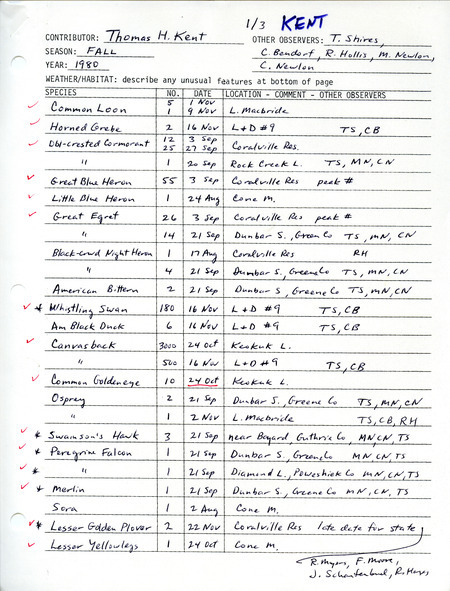 1/3 KENT
CONTRIBUTOR: Thomas H. Kent OTHER OBSERVERS: T. Shires,
SEASON: FALL C. Bendorf, R. Hollis, M. Newlon,
YEAR: 1980 C. Newlon
WEATHER/HABITAT: describe any unusual features at bottom of page
SPECIES NO. DATE LOCATION - COMMENT - OTHER OBSERVERS
Common Loon 5 1 Nov
1 9 Nov L. Macbride
Horned Grebe 2 16 Nov L+D #9 TS, CB
Dbl-crested Cormorant 12 3 Sep
25 27 Sep Coralville Res.
" 1 20 Sep Rock Creek L. TS, MN, CN
Great Blue Heron 55 3 Sep Coralville Res peak #
Little Blue Heron 1 24 Aug Cone M.
Great Egret 26 3 Sep Coralville Res peak #
" 14 21 Sep Dunbar S., Green Co TS, MN, CN
Black-crwd Night Heron 1 17 Aug Coralville Res RH
" 4 21 Sep Dunbar S., Greene Co TS, MN, CN
American Bittern 2 21 Sep Dunbar S., Greene Co TS, MN, CN
* Whistling Swan 180 16 Nov L+D #9 TS, CB
Am Black Duck 6 16 Nov L+D #9 TS, CB
Canvasback 3000 24 Oct Keokuk L.
" 500 16 Nov L+D #9 TS, CB
Common Goldeneye 10 24 Oct Keokuk L.
Osprey 2 21 Sep Dunbar S., Greene Co TS, MN, CN
" 1 2 Nov L. Macbride TS, CB, RH
* Swainson's Hawk 3 21 Sep near Bayard, Guthrie Co. MN, CN, TS
* Peregrine Falcon 1 21 Sep Dunbar S., Greene Co MN, CN, TS
* " 1 21 Sep Diamond L., Poweshiek Co MN, CN, TS
* Merlin 1 21 Sep Dunbar S., Greene Co MN, CN, TS
Sora 1 2 Aug Cone M.
* Lesser Golden Plover 2 22 Nov Coralville Res late date for state
Lesser Yellowlegs 1 24 Oct Cone M.
R. Myers, F. Moore,
J. Schaufenbuel, R. Hays